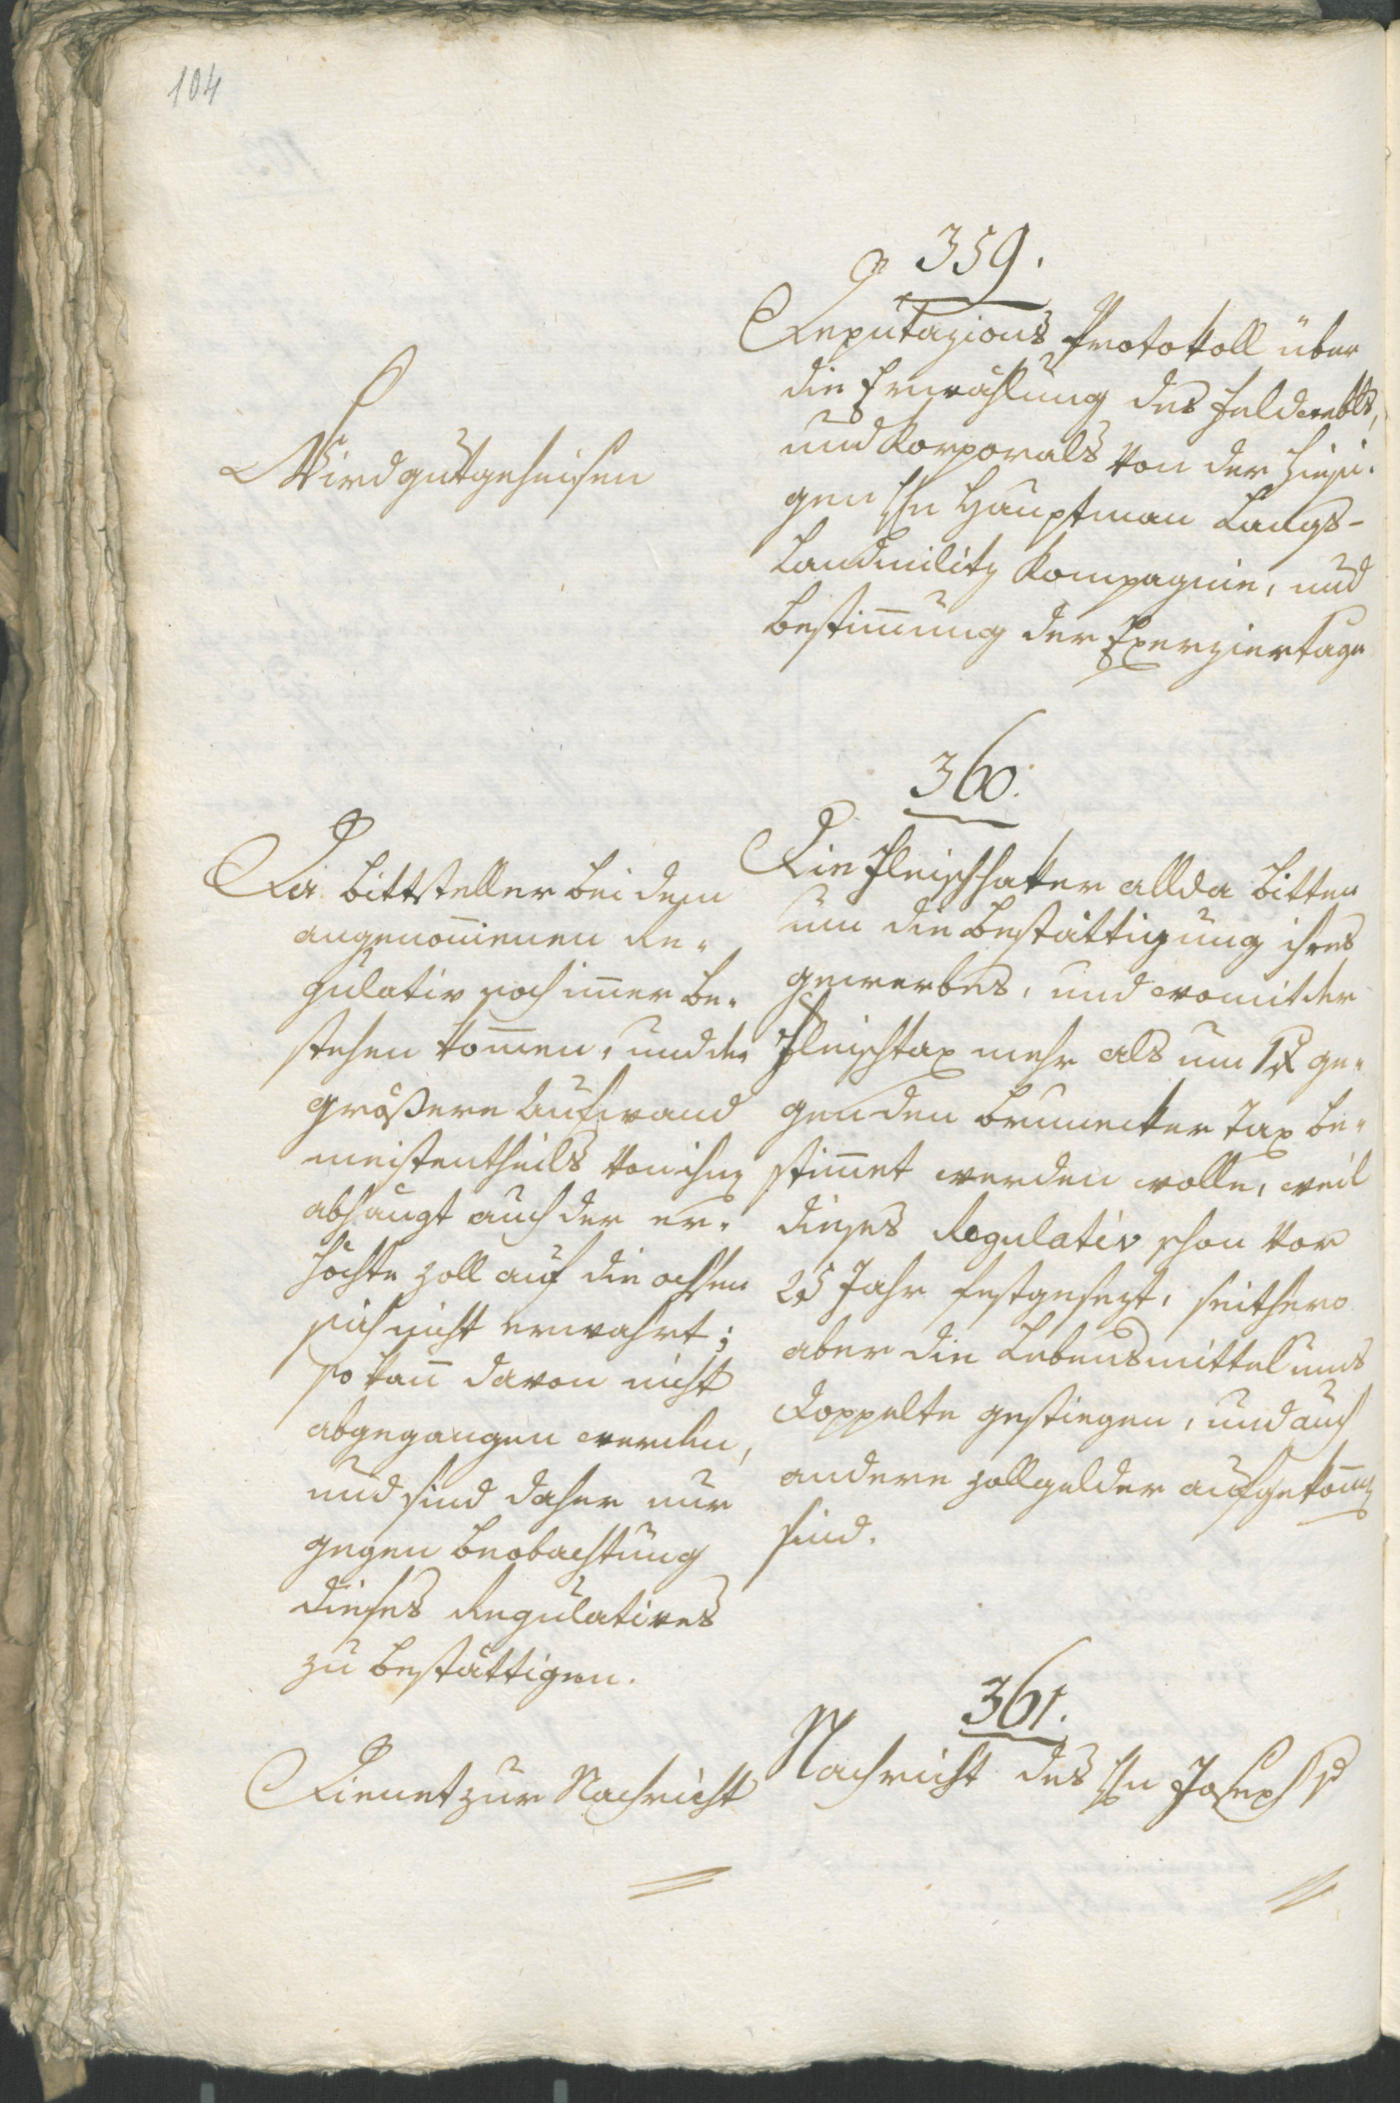 104
359.
Deputazions Protokoll über
die Erwählung des Feldwebls,
und Korporals von der hiesi-
gen Hn Hauptman Langs-
Landmilitz Kompagnie, und
Bestim̄ung der Exerziertage
Wird gutgeheisen
360.
Die Fleischhaker allda bitten
um die Bestättigung ihres
gewerbes, und womit der
Fleischtax mehr als um 1 x ge-
gen den Brunecker Tax be-
stim̄et werden wolle, weil
dieses Regulativ schon vor
25 Jahr festgesezt, seithero
aber die Lebensmittel ums
doppelte gestiegen, und auch
andere zollgelder aufgekom̄en
sind.
Da bittsteller bei dem
angenom̄enen Re-
gulativ noch im̄er be-
stehen kön̄en, und der
größere Aufwand
meistentheils von ihnen
abhängt auch der er-
höchte zoll auf die ochsen
sich nicht erwahrt;
so kan̄ davon nicht
abgegangen werden,
und sind daher nur
gegen beobachtung
dieses Regulatives
zu bestättigen.
361.
Nachricht des Hn Joseph v
Dienet zur Nachricht